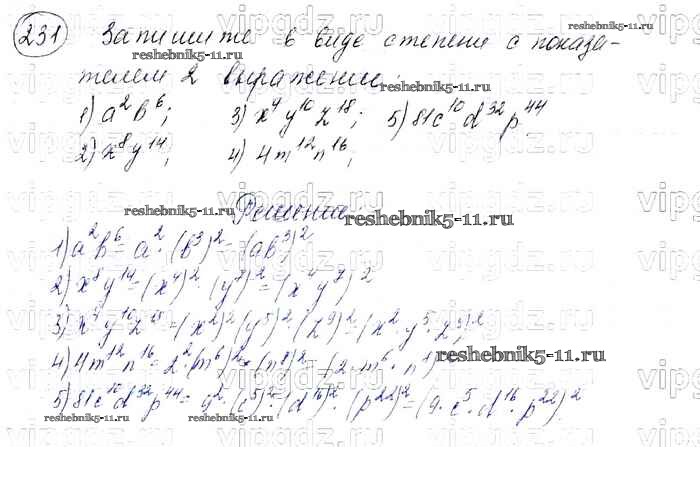 231 Запишите в виде степени с показа-
телем 2 выражение:
1) a²b⁶; 3) x⁴y¹⁰z¹⁸; 5) 81c¹⁰d³²p⁴⁴
2) x⁸y¹⁴; 4) 4m¹²n¹⁶;
Решение
1) a²b⁶ = a² · (b³)² = (ab³)²
2) x⁸y¹⁴ = (x⁴)² · (y⁷)² = (x⁴y⁷)²
3) x⁴y¹⁰z¹⁸ = (x²)² (y⁵)² · (z⁹)² = (x² · y⁵ · z⁹)²
4) 4m¹²n¹⁶ = 2² (m⁶)² · (n⁸)² = (2 · m⁶ · n⁸)²
5) 81c¹⁰d³²p⁴⁴ = 9² · (c⁵)² · (d¹⁶)² · (p²²)² = (9 · c⁵ · d¹⁶ · p²²)²
vipgdz.ru
reshebnik5-11.ru